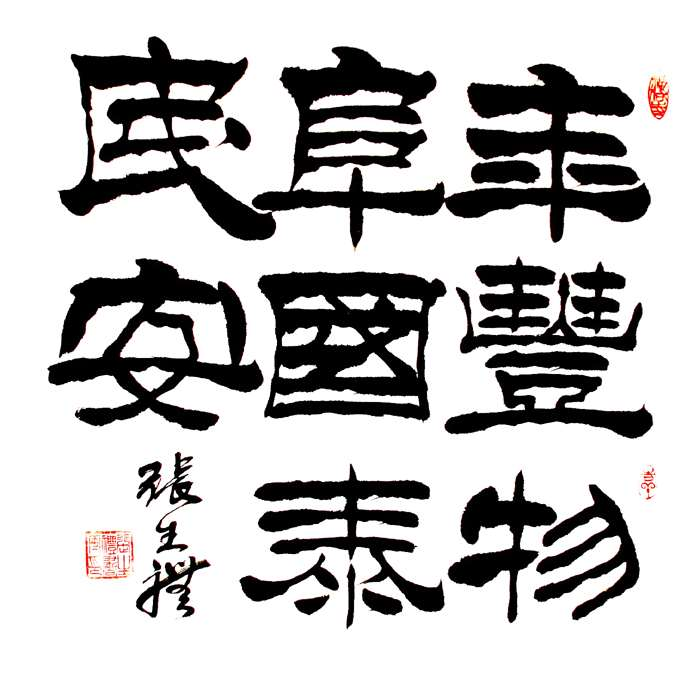 年豐物
阜國泰
民安
張